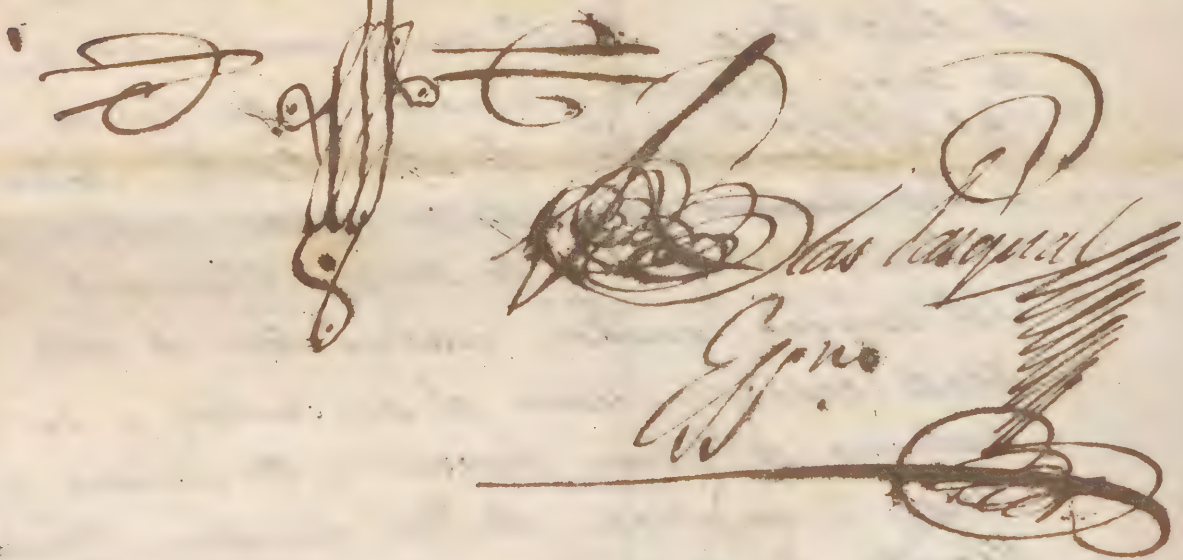 Blas Pasqual
Essno